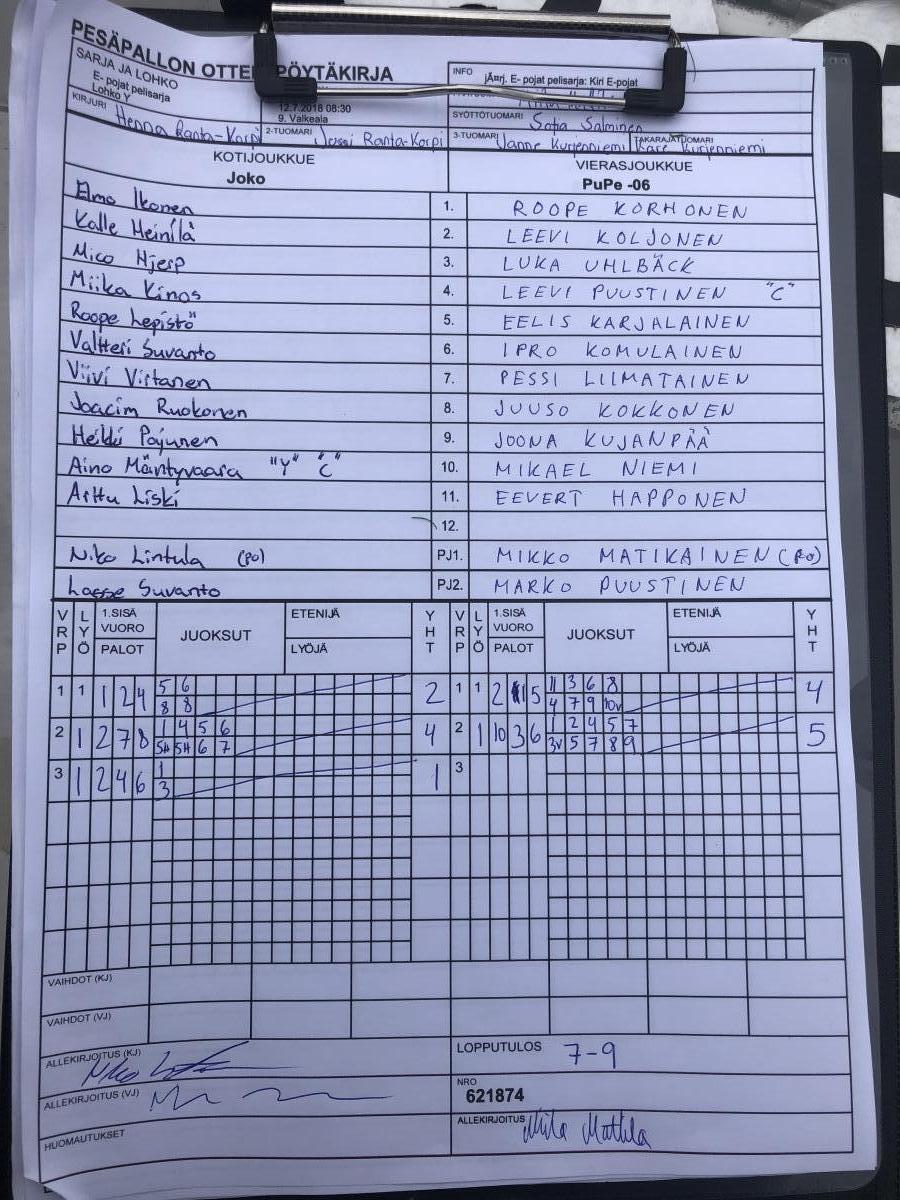 PESÄPALLON OTTE PÖYTÄKIRJA
SARJA JA LOHKO
E- pojat pelisarja
Lohko Y
12.7.2018 08:30
9. Valkeala
INFO
jÃ¤rj. E- pojat pelisarja: Kiri E-pojat
SYÖTTÖTUOMARI Satja Salminen
KIRJURI Henna Ranta-Korpi 2-TUOMARI Jossi Ranta-Korpi 3-TUOMARI Janne Kurjenniemi TAKARAJATUOMARI Kare Kurjenniemi
KOTIJOUKKUE VIERASJOUKKUE
Joko PuPe -06
Elmo Ikonen 1. ROOPE KORHONEN
Kalle Heinilä 2. LEEVI KOLJONEN
Mico Hjerp 3. LUKA UHLBÄCK
Miika Kinos 4. LEEVI PUUSTINEN "C"
Roope Lepistö 5. EELIS KARJALAINEN
Valtteri Suvanto 6. IPRO KOMULAINEN
Viivi Virtanen 7. PESSI LIIMATAINEN
Joacim Ruokonen 8. JUUSO KOKKONEN
Heikki Pajunen 9. JOONA KUJANPÄÄ
Aino Mäntyvaara "Y" "C" 10. MIKAEL NIEMI
Arttu Liski 11. EEVERT HAPPONEN
12.
Niko Lintula (po) PJ1. MIKKO MATIKAINEN (po)
Lasse Suvanto PJ2. MARKO PUUSTINEN
VRP LYÖ 1.SISÄ VUORO PALOT JUOKSUT ETENIJÄ LYÖJÄ YHT VRP LYÖ 1.SISÄ VUORO PALOT JUOKSUT ETENIJÄ LYÖJÄ YHT
1 1 1 2 4 5 6 2 1 1 2 5 11 3 6 8 4
8 8 4 7 9 10v
2 1 2 7 8 1 4 5 6 4 2 1 10 3 6 1 2 4 5 7 5
5H 5H 6 7 3v 5 7 8 9
3 1 2 4 6 1 1 3
3
VAIHDOT (KJ)
VAIHDOT (VJ)
ALLEKIRJOITUS (KJ) LOPPUTULOS 7-9
ALLEKIRJOITUS (VJ) NRO
621874
HUOMAUTUKSET ALLEKIRJOITUS Miila Mattila